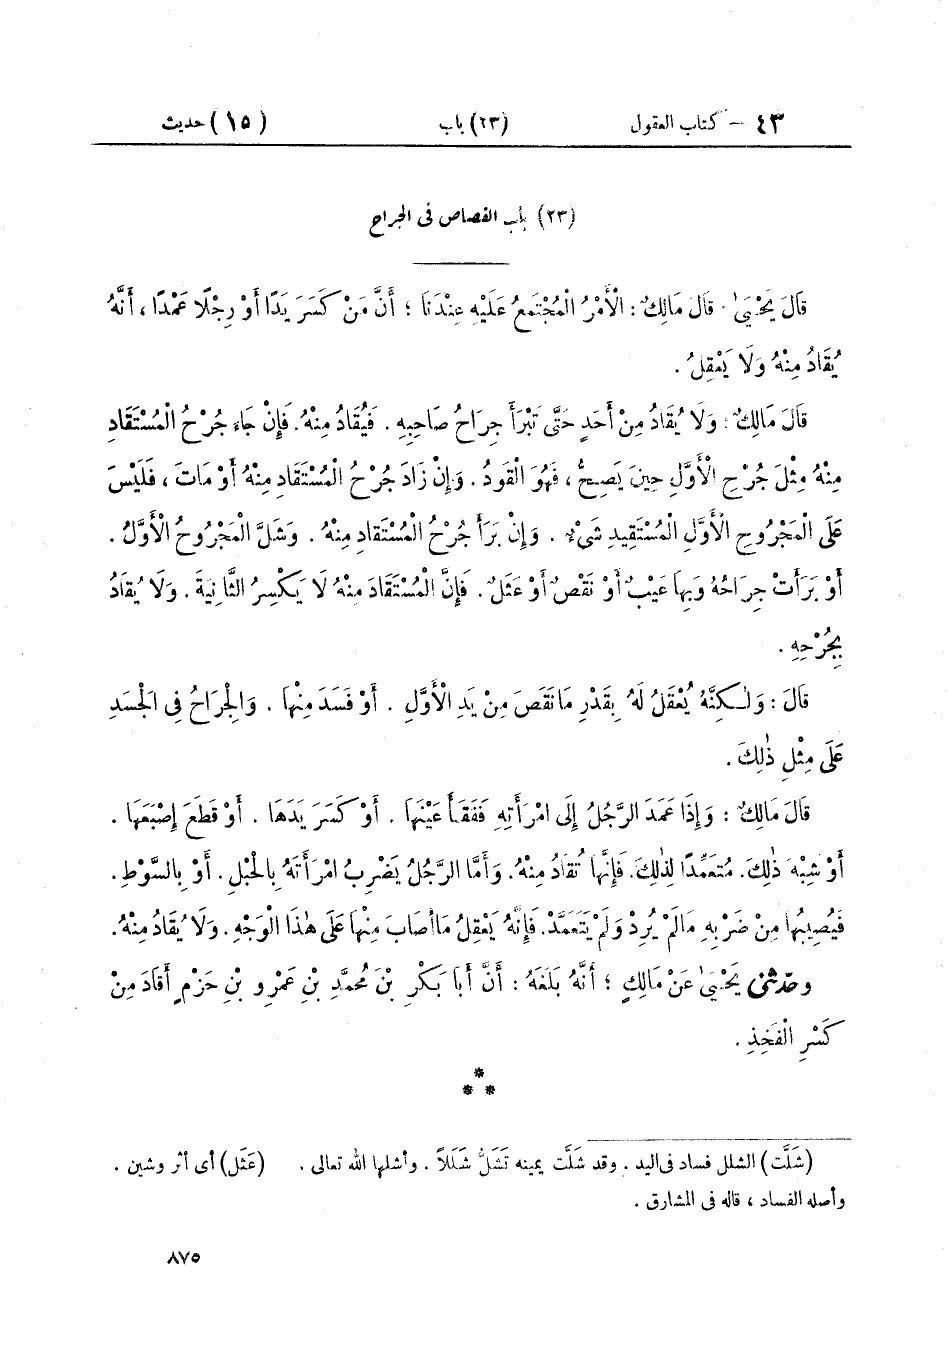 ٤٣ – كتاب العقول (٢٣) باب (١٥) حديث
(٢٣) باب القصاص فى الجراح
قَالَ يَحْيَىٰ . قَالَ مَالِكٌ : الْأَمْرُ الْمُجْتَمَعُ عَلَيْهِ عِنْدَنَا ؛ أَنَّ مَنْ كَسَرَ يَدًا أَوْ رِجْلًا عَمْدًا ، أَنَّهُ
يُقَادُ مِنْهُ وَلَا يَعْقِلُ .
قَالَ مَالِكٌ : وَلَا يُقَادُ مِنْ أَحَدٍ حَتَّى تَبْرَأَ جِرَاحُ صَاحِبِهِ . فَيُقَادُ مِنْهُ . فَإِنْ جَاءَ جُرْحُ الْمُسْتَقَادِ
مِنْهُ مِثْلَ جُرْحِ الْأَوَّلِ حِينَ يَصِحُّ ، فَهُوَ الْقَوَدُ . وَإِنْ زَادَ جُرْحُ الْمُسْتَقَادِ مِنْهُ أَوْ مَاتَ ، فَلَيْسَ
عَلَى الْمَجْرُوحِ الْأَوَّلِ الْمُسْتَقِيدِ شَيْءٌ . وَإِنْ بَرَأَ جُرْحُ الْمُسْتَقَادِ مِنْهُ . وَشَلَّ الْمَجْرُوحُ الْأَوَّلُ .
أَوْ بَرَأَتْ جِرَاحُهُ وَبِهَا عَيْبٌ أَوْ نَقْصٌ أَوْ عَثَلٌ . فَإِنَّ الْمُسْتَقَادَ مِنْهُ لَا يَكْسِرُ الثَّانِيَةَ . وَلَا يُقَادُ
بِجُرْحِهِ .
قَالَ : وَلٰكِنَّهُ يُعْقَلُ لَهُ بِقَدْرِ مَا نَقَصَ مِنْ يَدِ الْأَوَّلِ . أَوْ فَسَدَ مِنْهَا . وَالْجِرَاحُ فِى الْجَسَدِ
عَلَى مِثْلِ ذٰلِكَ .
قَالَ مَالِكٌ : وَإِذَا عَمَدَ الرَّجُلُ إِلَى امْرَأَتِهِ فَفَقَأَ عَيْنَهَا . أَوْ كَسَرَ يَدَهَا . أَوْ قَطَعَ إِصْبَعَهَا .
أَوْ شِبْهَ ذٰلِكَ . مُتَعَمِّدًا لِذٰلِكَ . فَإِنَّهَا تُقَادُ مِنْهُ . وَأَمَّا الرَّجُلُ يَضْرِبُ امْرَأَتَهُ بِالْحَبْلِ . أَوْ بِالسَّوْطِ .
فَيُصِيبُهَا مِنْ ضَرْبِهِ مَا لَمْ يُرِدْ وَلَمْ يَتَعَمَّدْ . فَإِنَّهُ يَعْقِلُ مَا أَصَابَ مِنْهَا عَلَى هٰذَا الْوَجْهِ . وَلَا يُقَادُ مِنْهُ .
وحدّثنى يَحْيَىٰ عَنْ مَالِكٍ ؛ أَنَّهُ بَلَغَهُ : أَنَّ أَبَا بَكْرِ بْنَ مُحَمَّدِ بْنِ عَمْرِو بْنِ حَزْمٍ أَقَادَ مِنْ
كَسْرِ الْفَخِذِ .
*
* *
(شَلَّت) الشلل فساد فى اليد . وقد شَلَّت يمينه تَشَلُّ شَلَلاً . وأشلها الله تعالى . (عَثَل) أى أثر وشين .
وأصله الفساد ، قاله فى المشارق .
٨٧٥